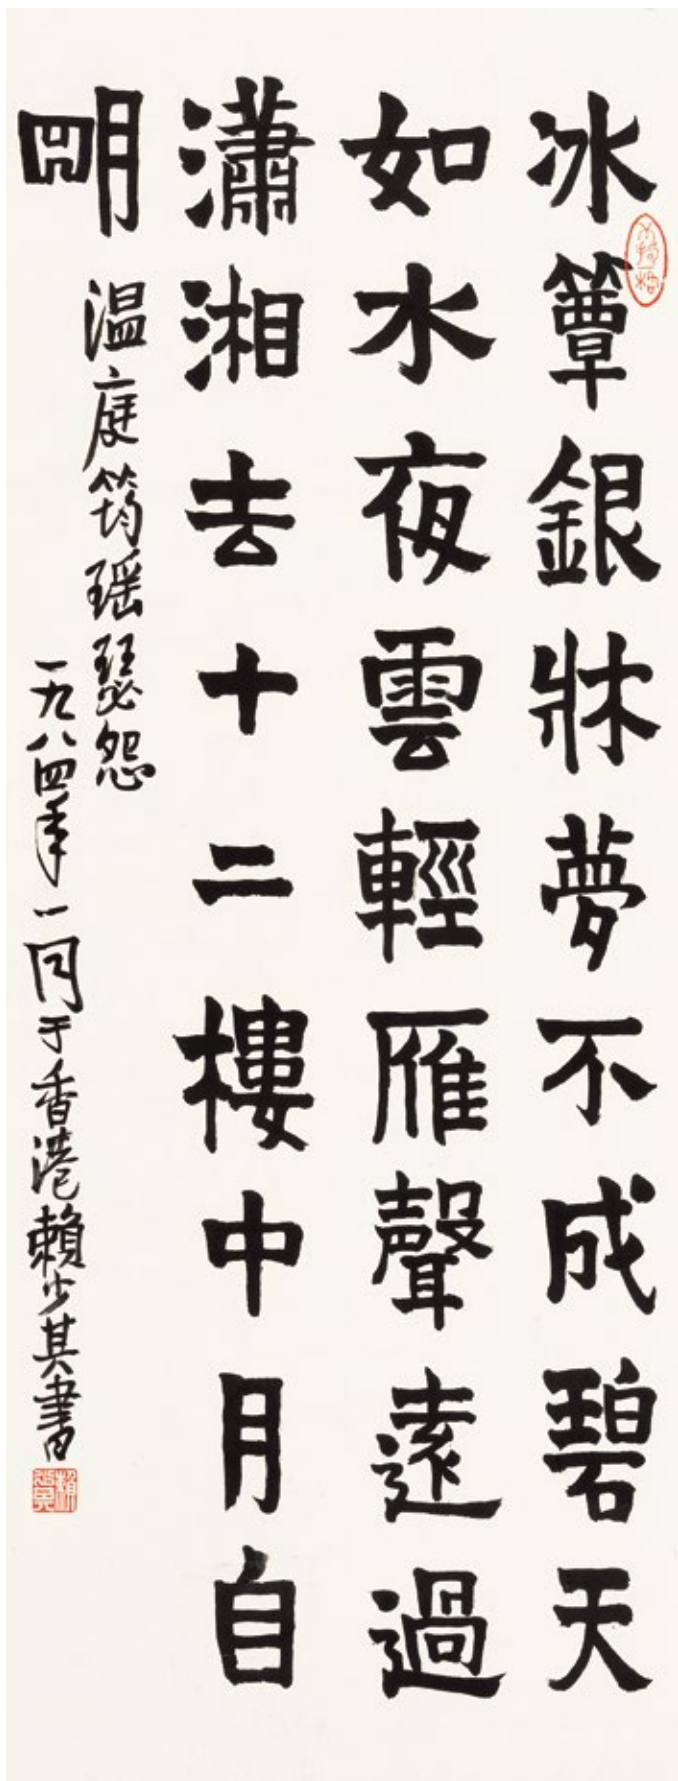 冰簟銀牀夢不成碧天
如水夜雲輕雁聲遠過
瀟湘去十二樓中月自
朙
温庭筠瑶瑟怨
一九八四年一月于香港賴少其書